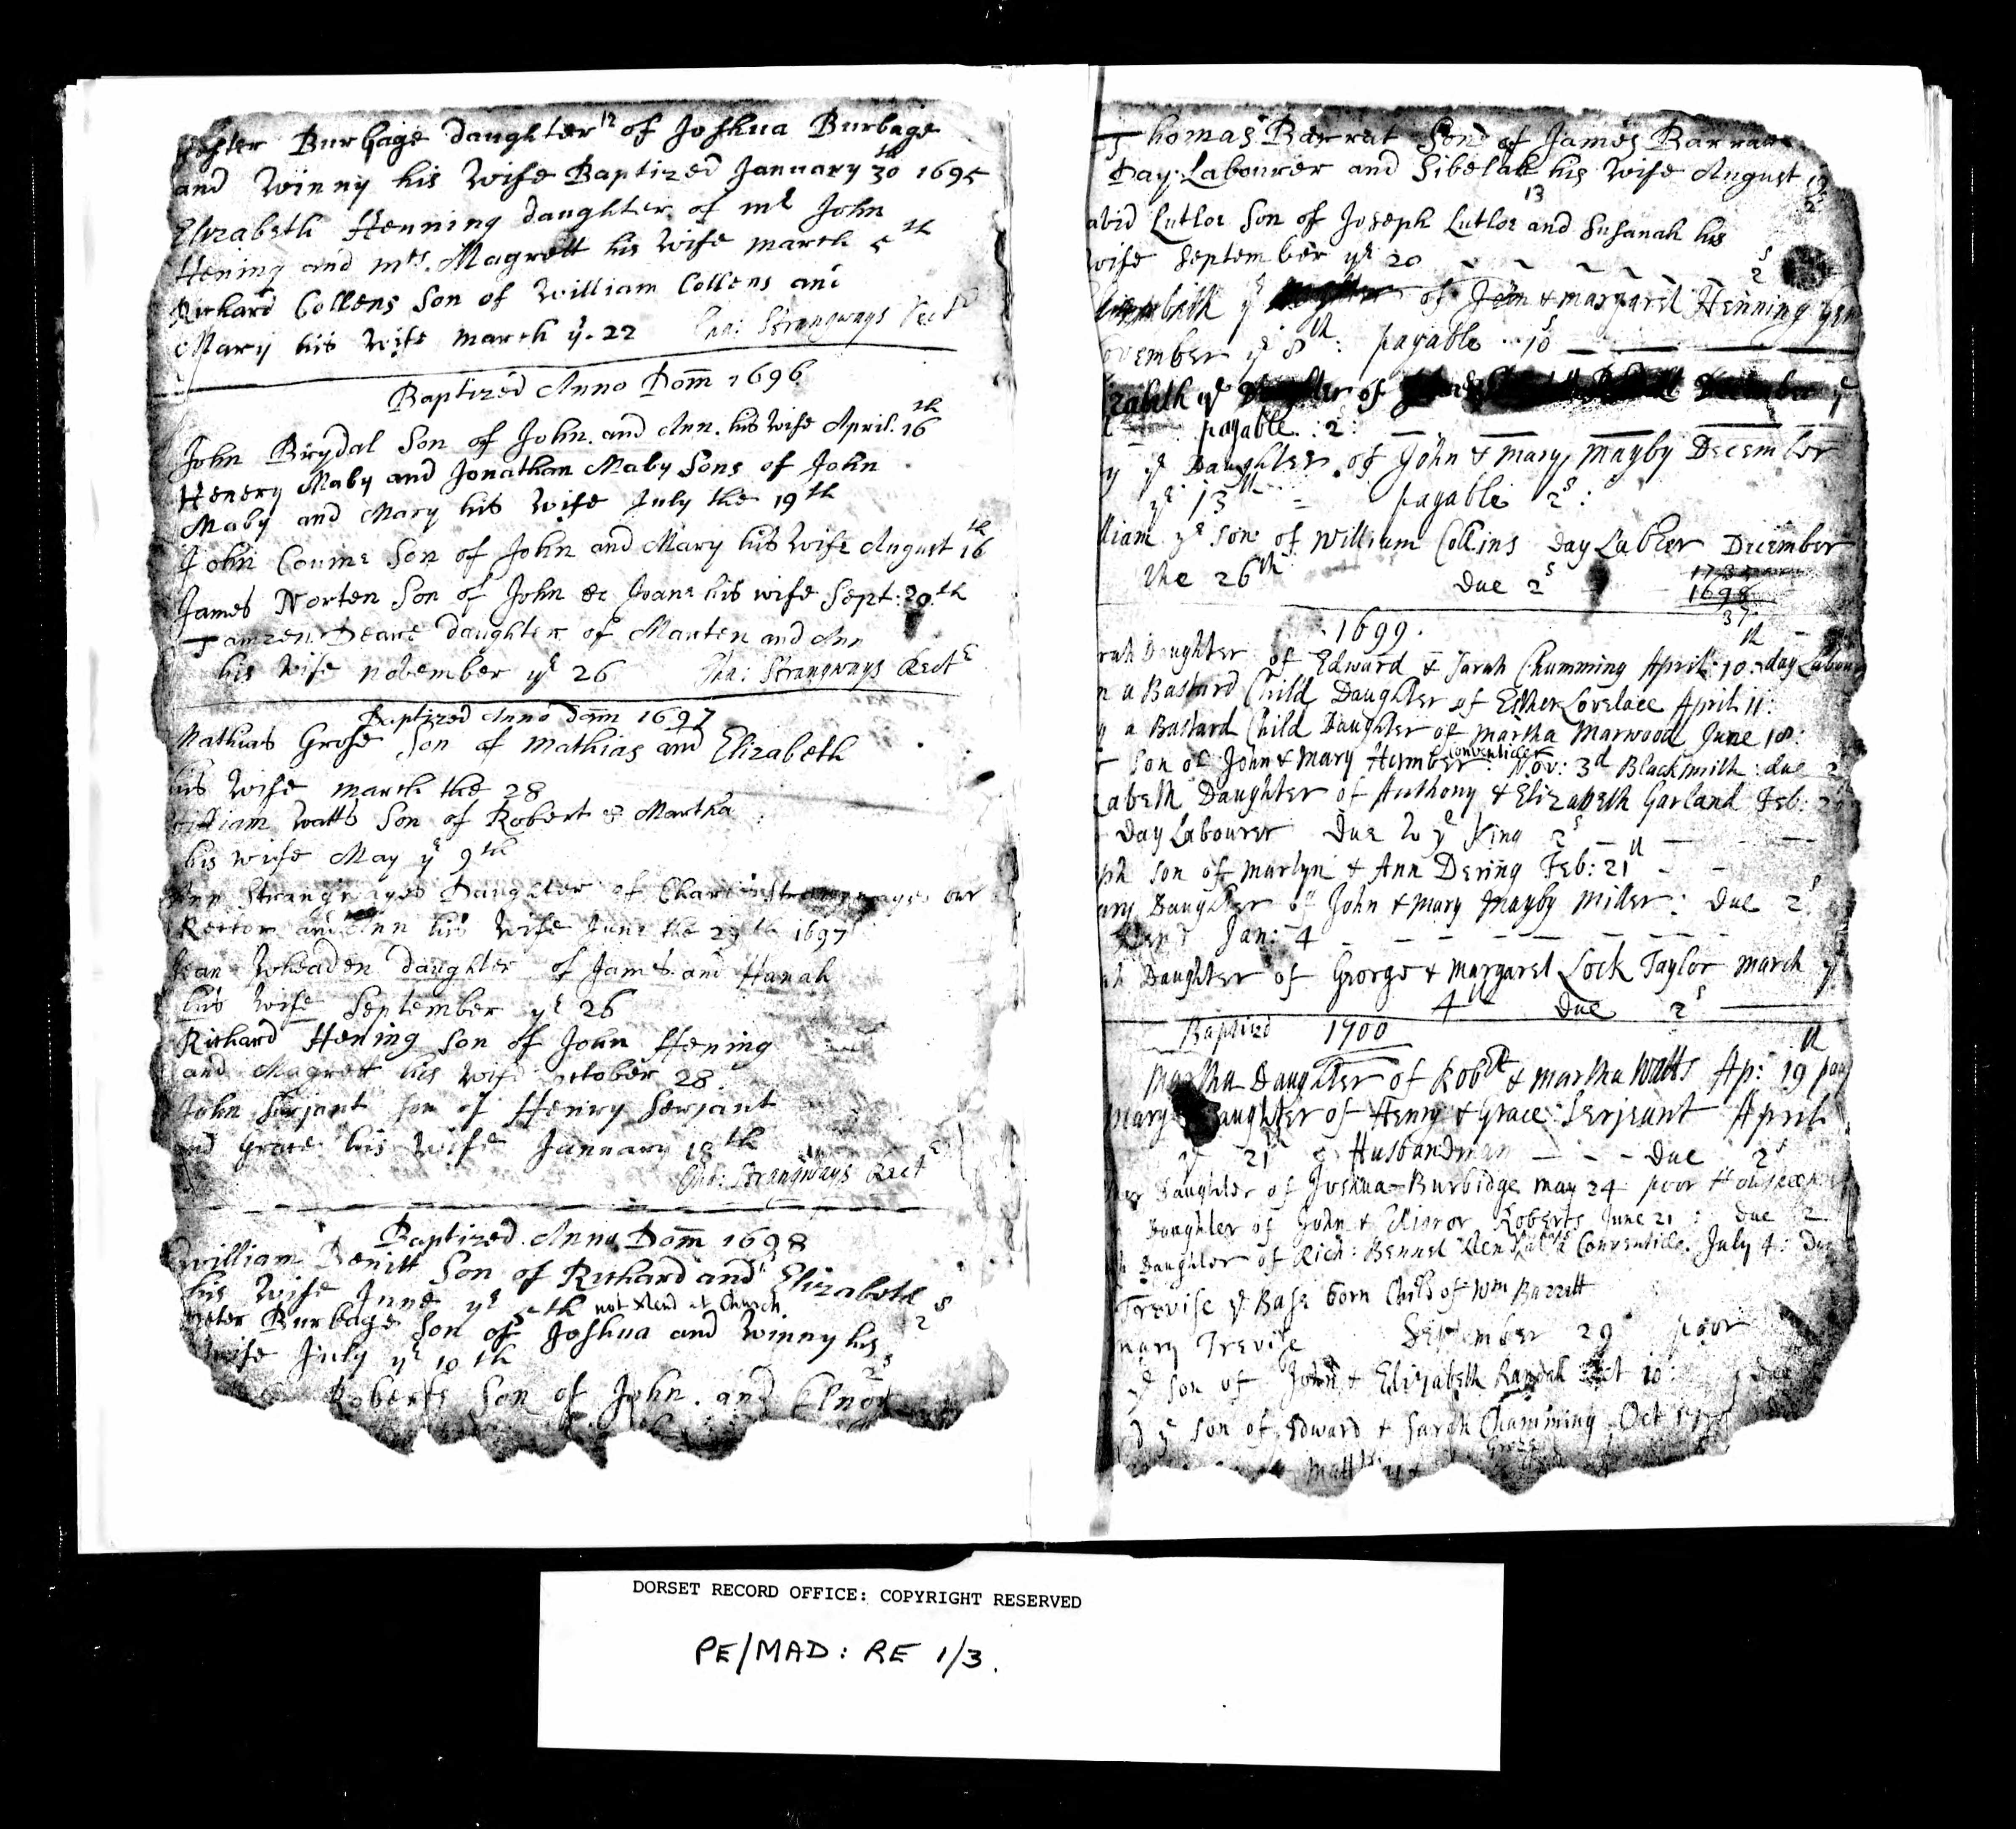 Burbage daughter 12 of Joshua Burbage
and Winny his Wife Baptized January 30th 1695
Elizabeth Henning daughter of mr John
Hening and mrs. Magrett his Wife march 5th
Richard Collens Son of William Collens and
Mary his Wife march ye. 22 Cha: Strangways Rectr
Baptized Anno Dom 1696
John Brydal Son of John. and Ann. his Wife April. 16th
Henery Maby and Jonathan Maby Sons of John
Maby and Mary his Wife July the 19th
John Son of John and Mary his Wife August 16th
James Norten Son of John & Joane his wife Sept: 20th
Tamzen. Deane daughter of Marten and Ann
his Wife november ye 26 Cha: Strangways Rectr
Baptized Anno Dom 1697
Mathias Grose Son of Mathias and Elizabeth
his Wife march the 28
William Watts Son of Robert & Martha
his wife May ye 9th
Ann Strangwayes Daughter of Charles Strangwayes our
Rector and Ann his Wife June the 29th 1697
Jean Wheaden daughter of James and Hanah
his Wife September ye 26
Richard Hening Son of John Hening
and Magrett his Wife october 28.
John Serjant son of Henry Serjant
and Grace his Wife January 18th
Cha: Strangways Rectr
Baptized Anno Dom 1698
William Benitt Son of Richard and Elizabeth
his Wife June ye 5th not at Church 2s
Peter Burbage Son of Joshua and Winny his
Wife July ye 10th 2s
Roberts Son of John. and Elnor
Thomas Barrat Son of James Barrat
Day Labourer and Sibelah his Wife August
13
avid Lutlor Son of Joseph Lutlor and Susanah his
Wife September ye 20 2s
Elizabeth ye of John & margaret Henning Gen
ovember ye 8th: payable 10s
izabeth ye Daughter of December ye
payable: 2:
y ye Daughter of John & Mary Mayby December
ye 13th payable 2s:
lliam ye Son of William Collins Day Labrer December
the 26th Due 2s
1735
1698
37
1699.
rah Daughter of Edward & Sarah Chumming April: 10th day Labour
n a Bastard Child Daughter of Esther Lovelace April 11:
y a Bastard Child Daughter of Martha Marwood June 18:
Son of John & Mary Conventicler Nov: 3d Blacksmith: due 2
zabeth Daughter of Anthony & Elizabeth Garland Feb:
Day Labourer Due to ye King 2s
ph Son of Martyn & Ann Dering Feb: 21th
ary Daughter of John & Mary Mayby Miller: Due 2s
Jan: 4
ah Daughter of George & Margaret Lock Taylor March ye
4th Due 2s
Baptized 1700
Martha Daughter of Robrt & Martha Watts Ap: 19th pay
Mary Daughter of Henry & Grace Serjeant April
ye 21 Husbandman Due 2s
Daughter of Joshua Burbidge May 24 poor
Daughter of John & Elinor Roberts June 21: Due 2
h Daughter of Rich: Bennet at a Conventicle. July 4: Due
Trevise ye Base born Child of Wm Barrett
Mary Trevise September 29 poor
ye Son of John & Elizabeth Randal Oct 10: Due
d ye Son of Edward & Sarah Chamming Oct
Groze
DORSET RECORD OFFICE: COPYRIGHT RESERVED
PE/MAD: RE 1/3.